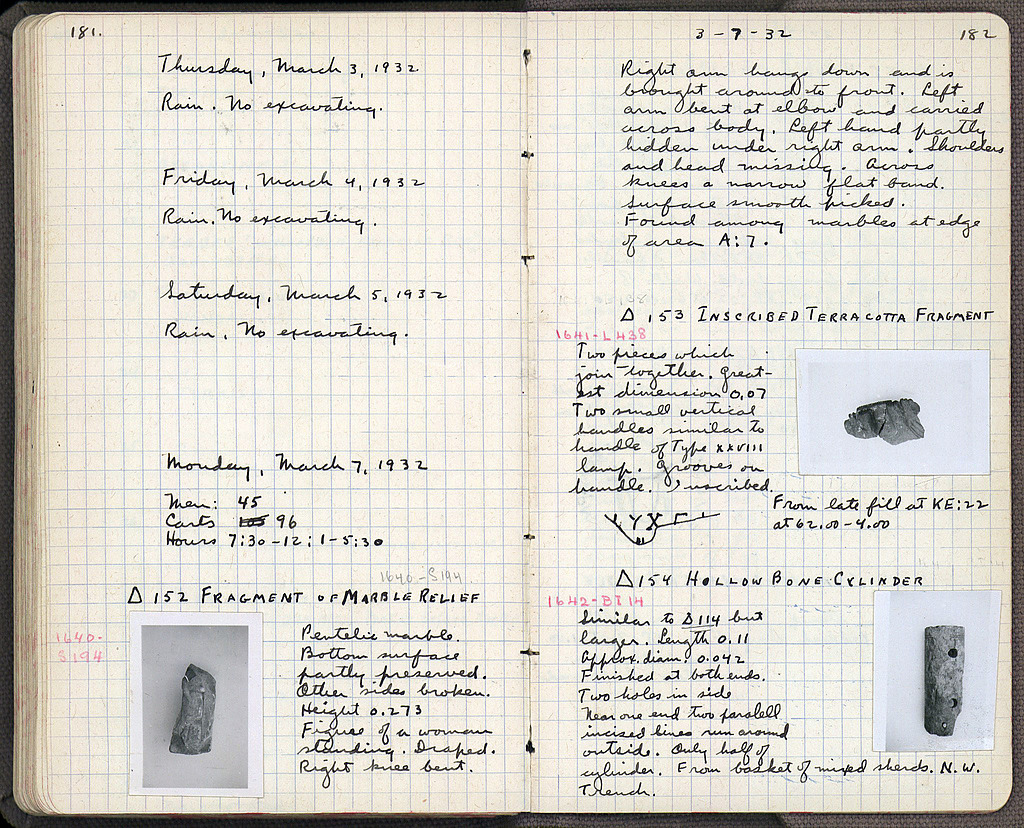 181.
Thursday, March 3, 1932
Rain. No excavating.
Friday, March 4, 1932
Rain. No excavating.
Saturday, March 5, 1932
Rain. No excavating.
Monday, March 7, 1932
Men: 45
Carts 105 96
Hours 7:30-12; 1-5:30
1640-S194
Δ 152 FRAGMENT OF MARBLE RELIEF
1640-
S194
Pentelic marble.
Bottom surface
partly preserved.
Other sides broken.
Height 0.273
Figure of a woman
standing. Draped.
Right knee bent.
3-7-32
182
Right arm hangs down and is
brought around to front. Left
arm bent at elbow and carried
across body. Left hand partly
hidden under right arm. Shoulders
and head missing. Across
knees a narrow flat band.
Surface smooth picked.
Found among marbles at edge
of area A:7.
Δ 153 INSCRIBED TERRACOTTA FRAGMENT
1641-L438
Two pieces which
join together. Great-
est dimension 0.07
Two small vertical
handles similar to
handle of Type XXVIII
lamp. Grooves on
handle. Inscribed.
From late fill at KE:22
at 62.00-4.00
Δ 154 HOLLOW BONE CYLINDER
1642-BI 14
Similar to Δ 114 but
larger. Length 0.11
Approx. diam. 0.042
Finished at both ends.
Two holes in side
Near one end two parallell
incised lines run around
outside. Only half of
cylinder. From basket of mixed sherds. N.W.
Trench.